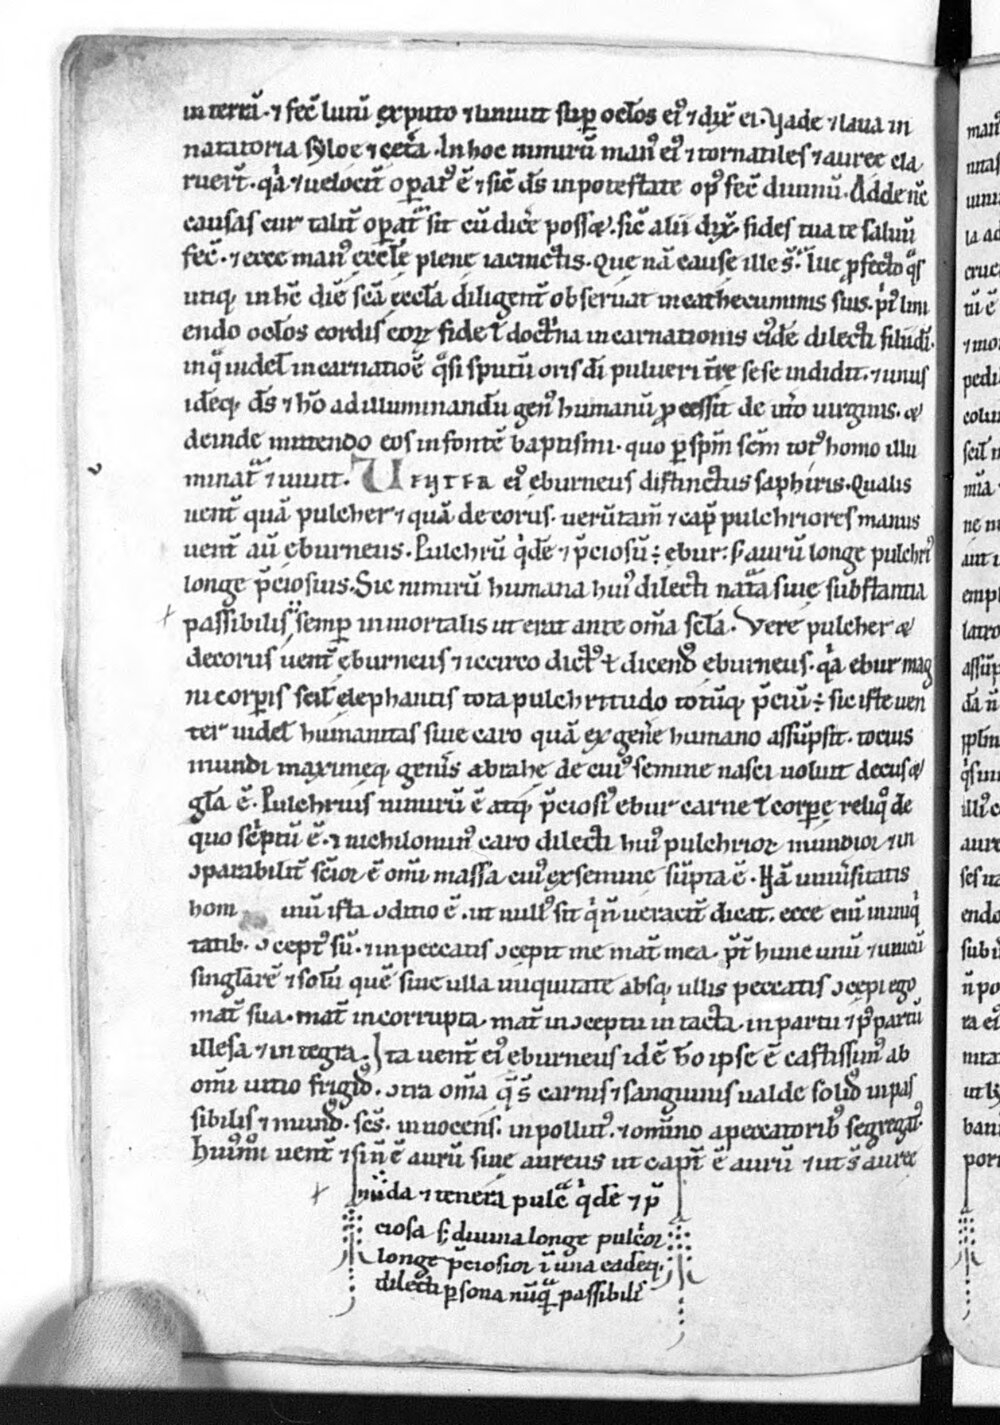 in terrā · ⁊ fec̄ lutū ex puto ⁊ liniuit suꝑ oc̄los eiꝰ ⁊ dix̄ ei · Vade ⁊ laua in
natatoria syloe ⁊ cet̄a · In hoc nimirū manꝰ eiꝰ ⁊ tornatiles ⁊ auree cla
ruer̄t · q̄a ⁊ uelocit̄ oꝑatꝰ ē ⁊ sic̄ ds̄ in potestate opꝰ fec̄ diuinū · Adde nc̄
causas cur talit̄ oꝑatꝰ sit cū dic̄e posset · sic̄ alii dix̄ · fides tua te saluū
fec̄ · ⁊ ecce manꝰ eccl̄e plene iacinctis · Que nā cause ille s̄t · luc̄ ꝓfecto q̄s
utiq; in hc̄ diē sc̄a eccl̄a diligent̄ obseruat in cathecuminis suis · p̄ꝰ lini
endo oc̄los cordis eoꝝ fide ł doct̄na incarnationis eiꝰdē dilecti filii dī ·
in q̄ uidel̄ incarnatiōe q̄si sputū oris dī pulueri tr̄e sese indidit · ⁊ unus
idēq; ds̄ ⁊ hō ad illuminandū genꝰ humanū ꝓcessit de ut̄o uirginis · et
deinde mittendo eos in fontē baptismi · quo ꝑ sp̄m sc̄m totꝰ homo illu
minat̄ ⁊ uiuit · Uenter eiꝰ eburneus distinctus saphiris · Qualis
uent̄ quā pulcher ⁊ quā decorus · uerūtam̄ ⁊ cap̄ pulchriores manus
uent̄ aū eburneus · Pulchrū q̄dē ⁊ p̄ciosū ÷ ebur · s; aurū longe pulchriꝰ
longe p̄ciosius · Sic nimirū humana huiꝰ dilecti nat̄a siue substantia
passibilis semꝑ inmortalis ut erat ante om̄a sc̄la · Vere pulcher et
decorus uent̄ eburneus ⁊ iccirco dictꝰ ł dicendꝰ eburneus · q̄a ebur mag
ni corꝑis scil̄ elephantis tota pulchritudo totūq; p̄ciū ÷ sic iste uen
ter uidel̄ humanitas siue caro quā ex gen̄e humano assūpsit · tocius
mundi maximeq; gen̄is abrahe de cuiꝰ semine nasci uoluit decus et
gl̄a ē · Pulchrius nimirū ē atq; p̄ciosiꝰ ebur carne ł corꝑe reliq̄ de
quo sc̄ptū ē · ⁊ nichilominꝰ caro dilecti huiꝰ pulchrior mundior ⁊ in
ɔparabilit̄ sc̄ior ē om̄i massa cuiꝰ ex semine sūpta ē · Nā uniu̇sitatis
hom num ista ɔditio ē · ut nullꝰ sit q̄ n̄ ueracit̄ dicat · ecce eni in iniq̄
tatib; ɔceptꝰ sū · ⁊ in peccatis ɔcepit me mat̄ mea · p̄t hunc unū ⁊ unicū
singl̄arē ⁊ solū quē sine ulla iniquitate absq; ullis peccatis ɔcepi ego
mat̄ sua · mat̄ incorrupta · mat̄ in ɔceptu intacta · in partu ⁊ p̄ partū
illesa ⁊ integra · Ita uent̄ eiꝰ eburneus idē hō ipse ē castissimꝰ ab
om̄i uitio frigidꝰ · ɔtra om̄a q̄ s̄ carnis ⁊ sanguinis ualde solidꝰ inpas
sibilis ⁊ mundꝰ · sc̄s · innocens · inpollutꝰ · ⁊ om̄ino a peccatorib; segregatꝰ ·
Huiꝰmi uent̄ ⁊ si n̄ ē aurū siue aureus ut cap̄ ē aurū ⁊ ut s̄ auree
nuda ⁊ tenera pulc̄ q̄dē ⁊ p̄
ciosa s; diuina longe pulcīor
longe p̄ciosior ī una eadēq;
dilecti ꝑsona nūq̄ passibilis